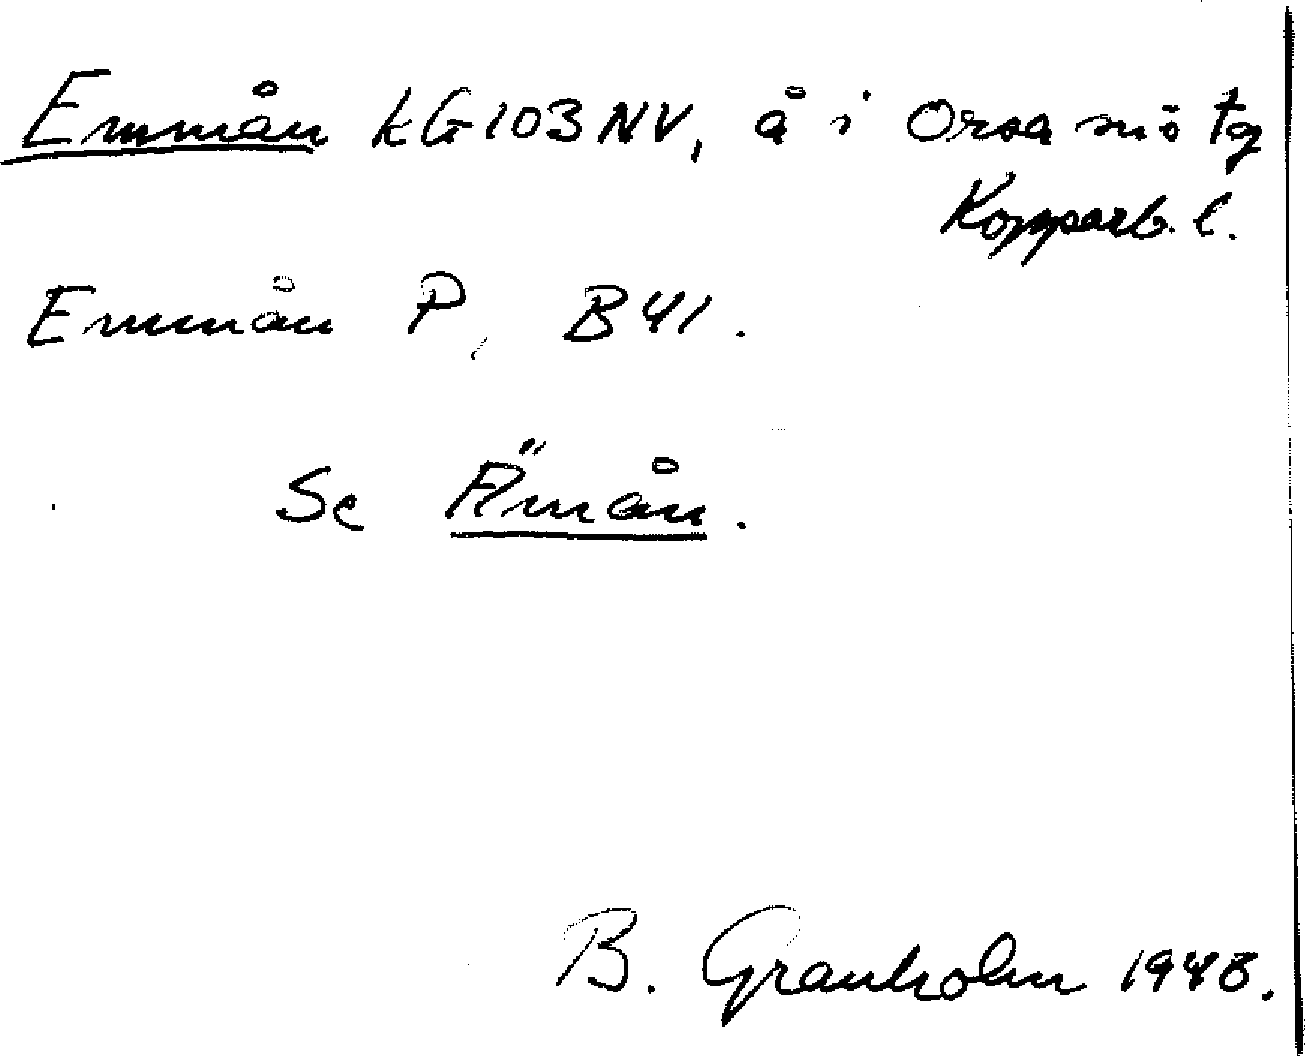 Emmån kG103NV, å i Orsa
Kopparb. l.
Emmån P, B41.
Se Ämån.
B. Granholm 1948.